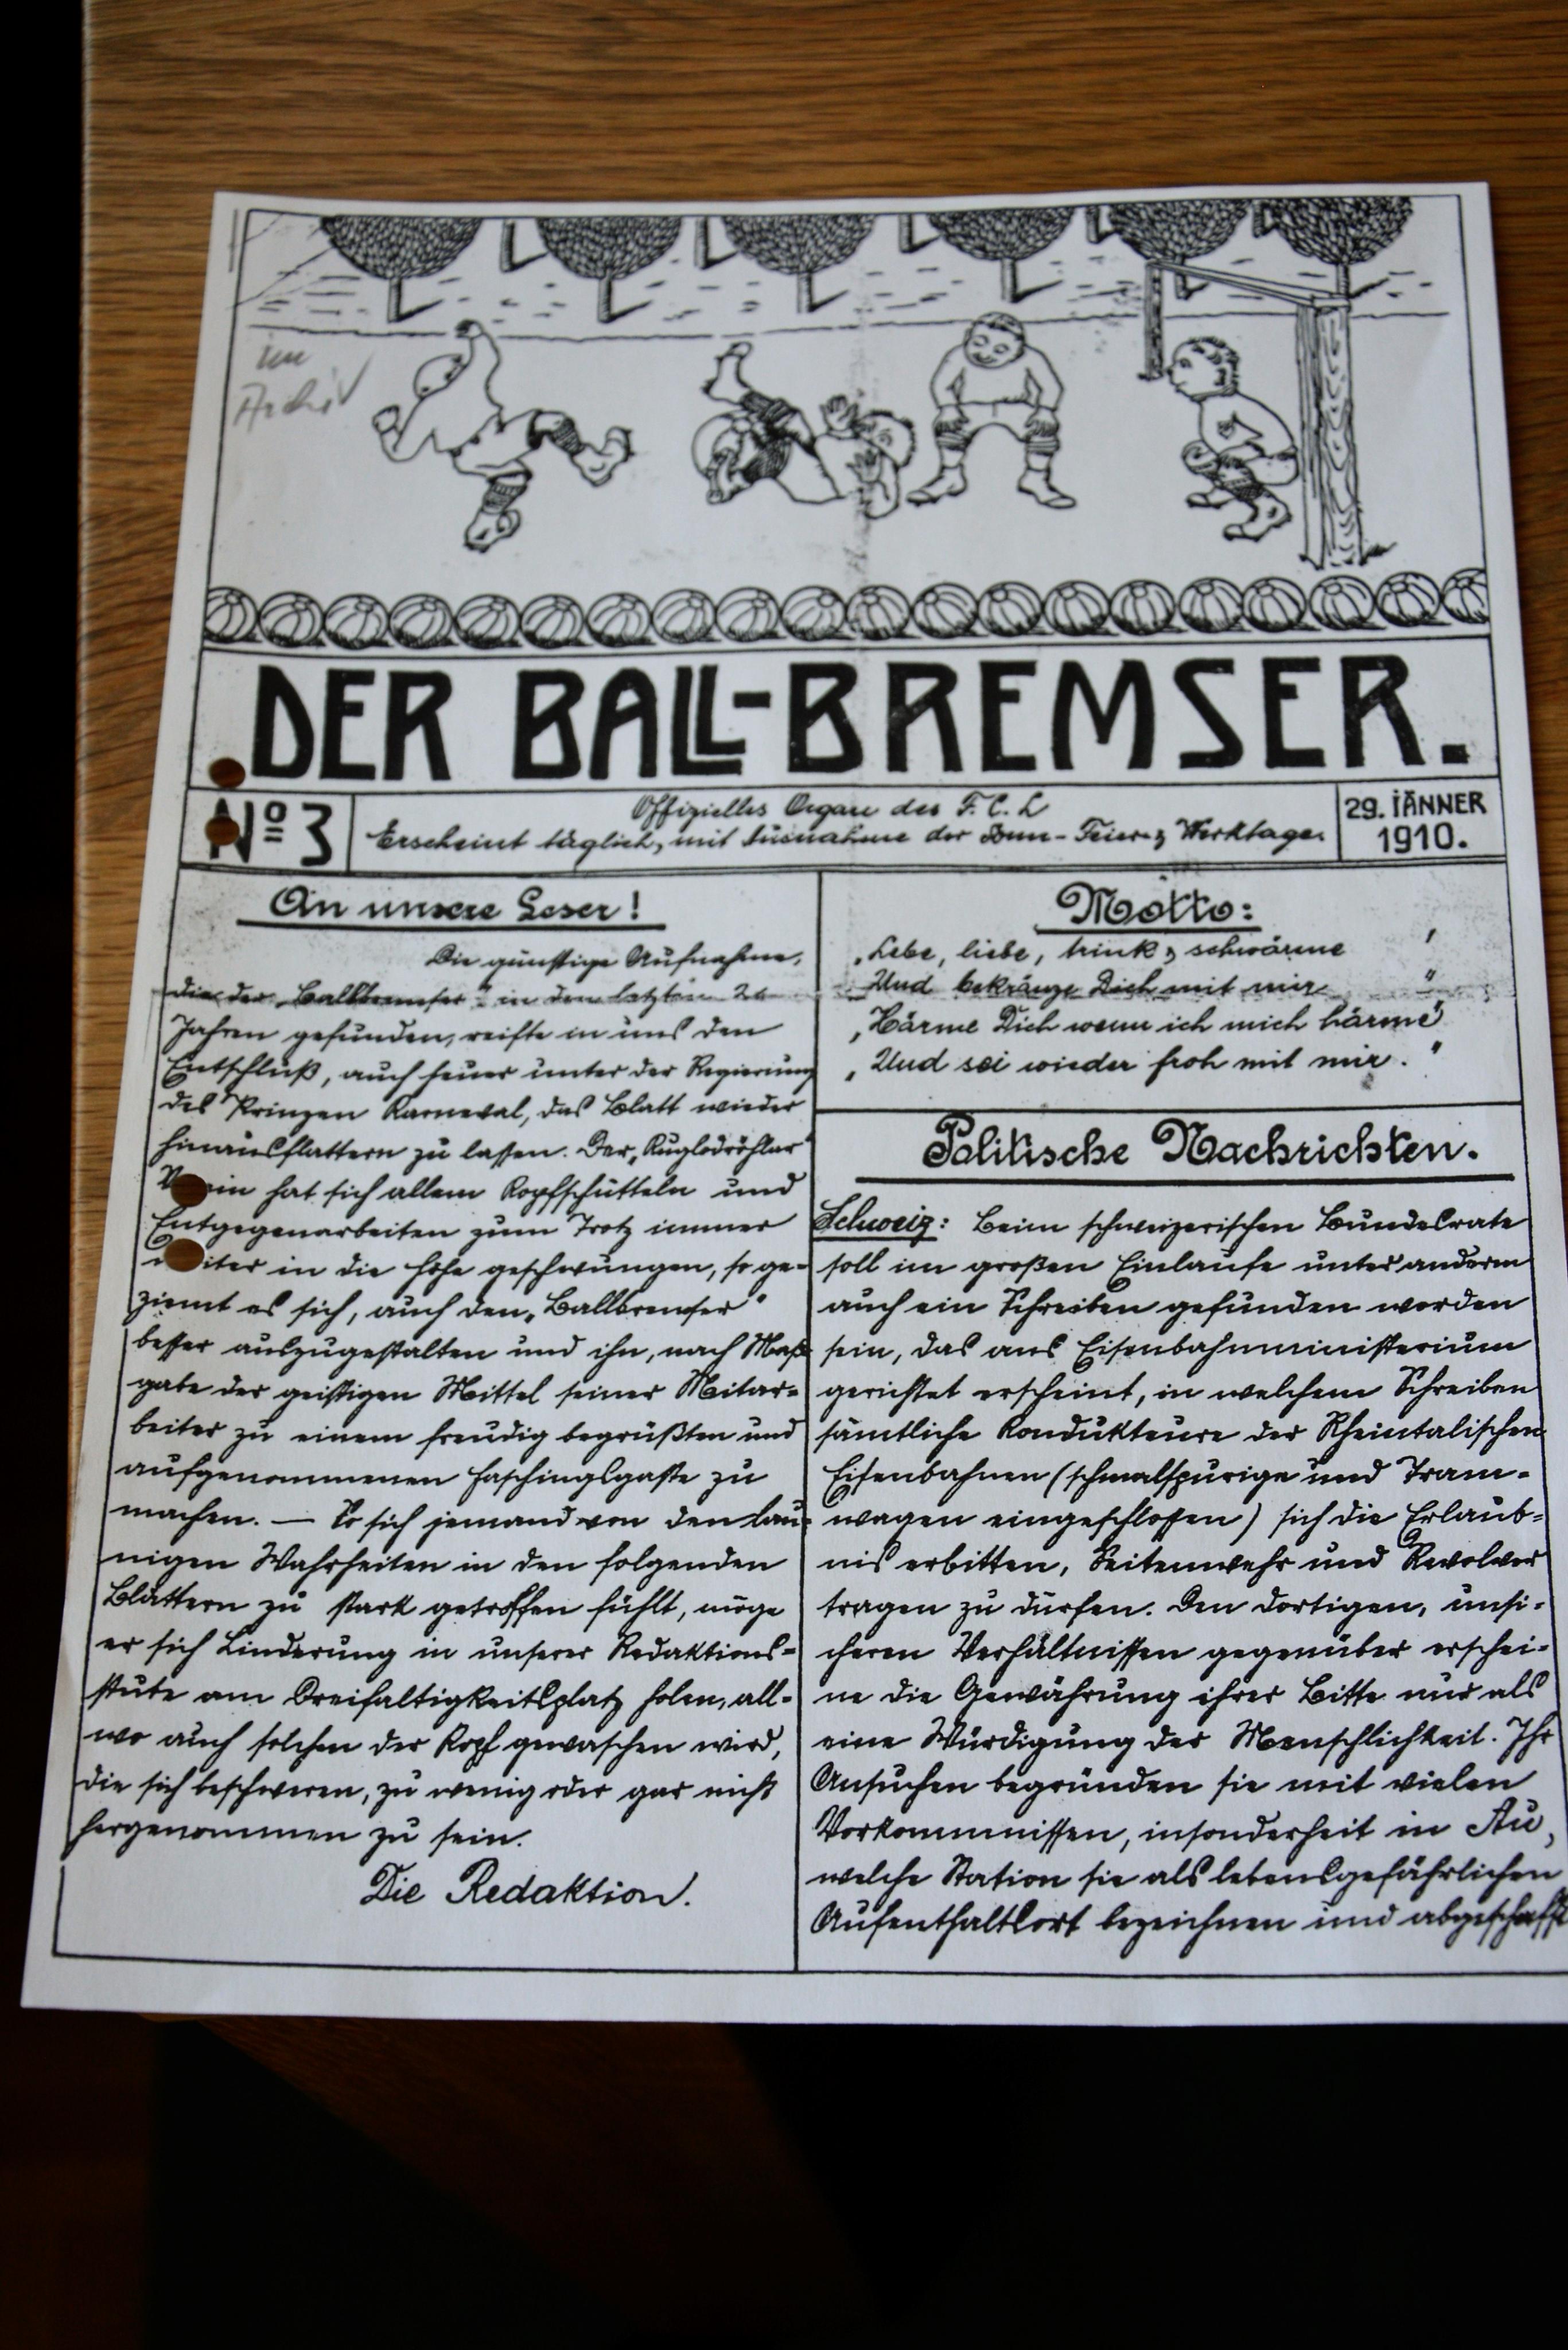 im
Archiv
DER BALL-BREMSER.
Nº 3
Offizielles Organ des F. C. L
Erscheint täglich, mit Ausnahme der Sonn- Feier- & Werktage.
29. JÄNNER
1910.
An unsere Leser!
Die günstige Aufnahme,
die der „Ballbremser" in den letzten 2
Jahren gefunden, reifte in uns den
Entschluß, auch heuer unter der Regierung
des Prinzen Karneval, das Blatt wieder
hinausflattern zu lassen. Der
hat sich allem Kopfschütteln und
Entgegenarbeiten zum Trotz immer
weiter in die Höhe geschwungen, so ge-
ziemt es sich, auch den „Ballbremser"
besser auszugestalten und ihn, nach Maß-
gabe der geistigen Mittel seiner Mitar-
beiter zu einem freudig begrüßten und
aufgenommenen Faschingsgaste zu
machen. — So sich jemand von den lau-
nigen Wahrheiten in den folgenden
Blättern zu stark getroffen fühlt, möge
er sich Linderung in unserer Redaktions-
stube am Dreifaltigkeitsplatz holen, all-
wo auch solchen der Kopf gewaschen wird,
die sich beschweren, zu wenig oder gar nicht
hergenommen zu sein.
Die Redaktion.
Motto:
„Lebe, liebe, trink & schwärme "
„Und bekränze Dich mit mir "
„Härme Dich wenn ich mich härme"
„Und sei wieder froh mit mir."
Politische Nachrichten.
Schweiz: Beim schweizerischen Bundesrate
soll im großen Einlaufe unter anderm
auch ein Schreiben gefunden worden
sein, das ans Eisenbahnministerium
gerichtet erscheint, in welchem Schreiben
sämtliche Kondukteure der Rheintalischen
Eisenbahnen (schmalspurige und Tram-
wagen eingeschlossen) sich die Erlaub-
nis erbitten, Seitenwehr und Revolver
tragen zu dürfen. Den dortigen, unsi-
cheren Verhältnissen gegenüber erschei-
ne die Gewährung ihrer Bitte nur als
eine Würdigung der Menschlichkeit. Ihr
Ansuchen begründen sie mit vielen
Vorkommnissen, insonderheit in Au,
welche Station sie als lebensgefährlichen
Aufenthaltsort bezeichnen und abgeschafft